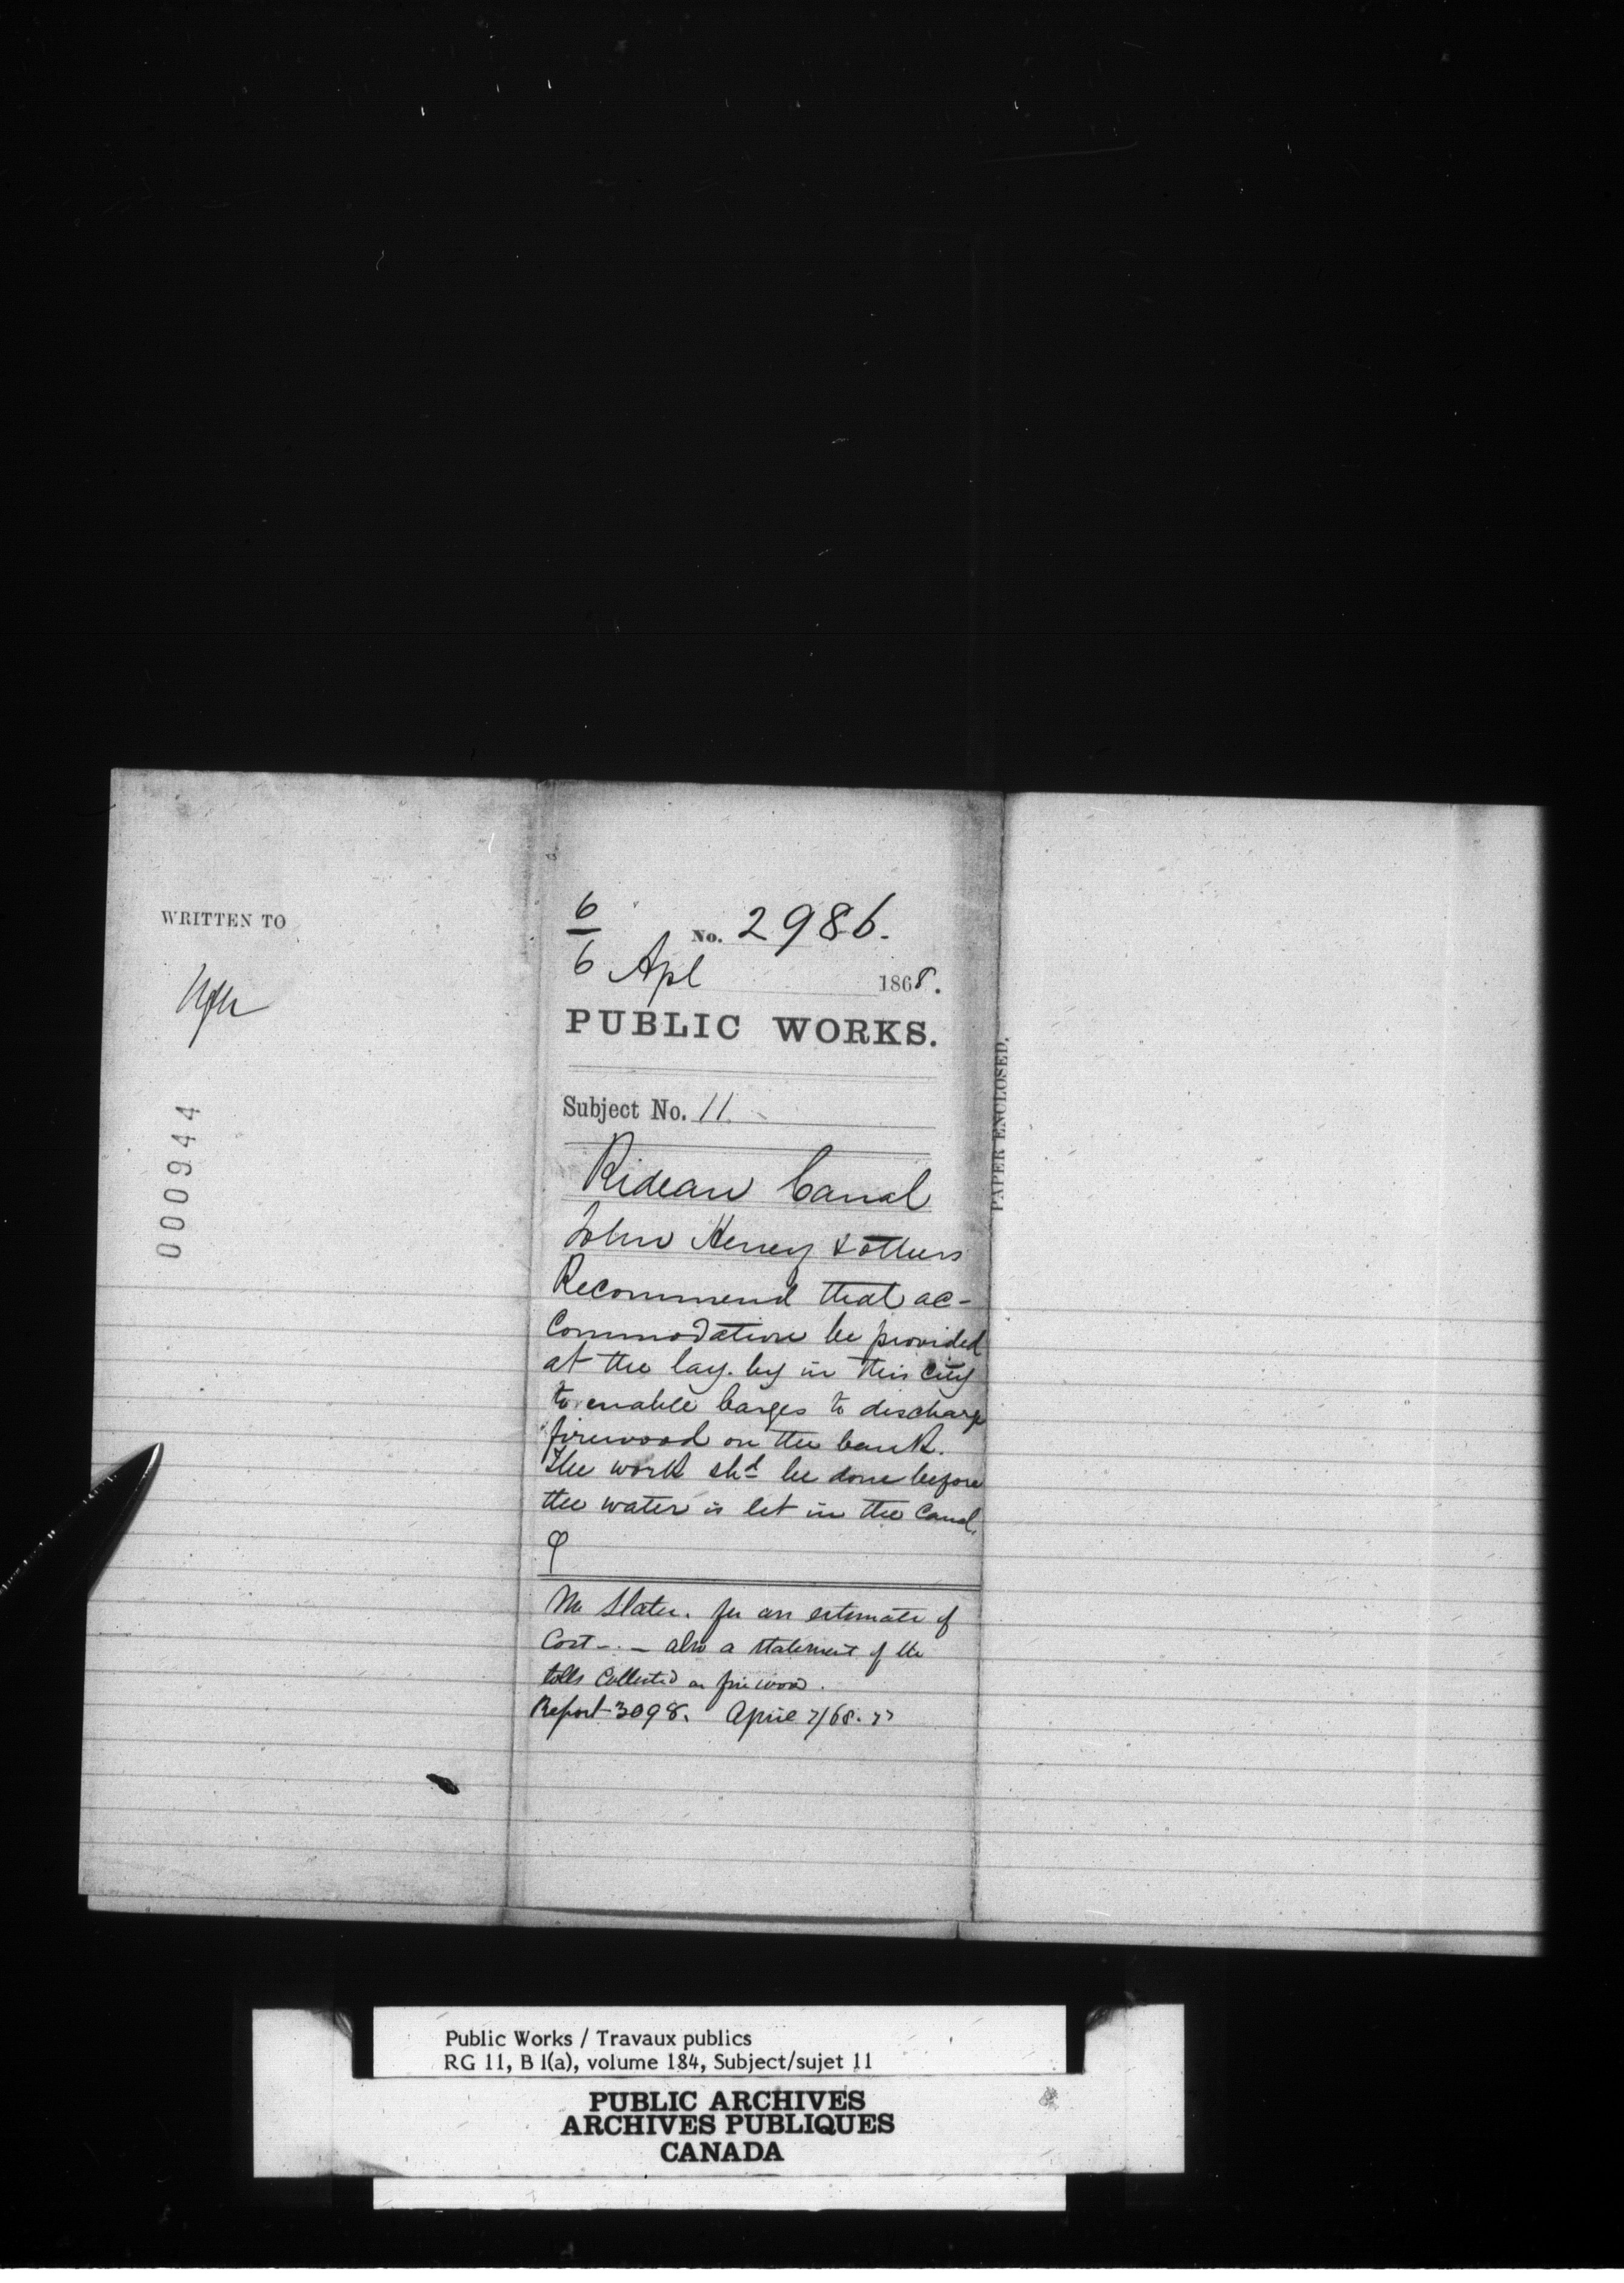 WRITTEN TO
000944
6
6
No. 2986.
Apl 1868.
PUBLIC WORKS.
Subject No. 11.
Rideau Canal
John Heney & others
Recommend that ac-
commodation be provided
at the lay-by in this city
to enable barges to discharge
firewood on the bank.
The work shd be done before
the water is let in the Canal.
Mr Slater. for an estimate of
Cost - . - also a statement of the
tolls Collected on firewood.
Report 3098. April 7/68.
PAPER ENCLOSED.
Public Works / Travaux publics
RG 11, B 1(a), volume 184, Subject/sujet 11
PUBLIC ARCHIVES
ARCHIVES PUBLIQUES
CANADA